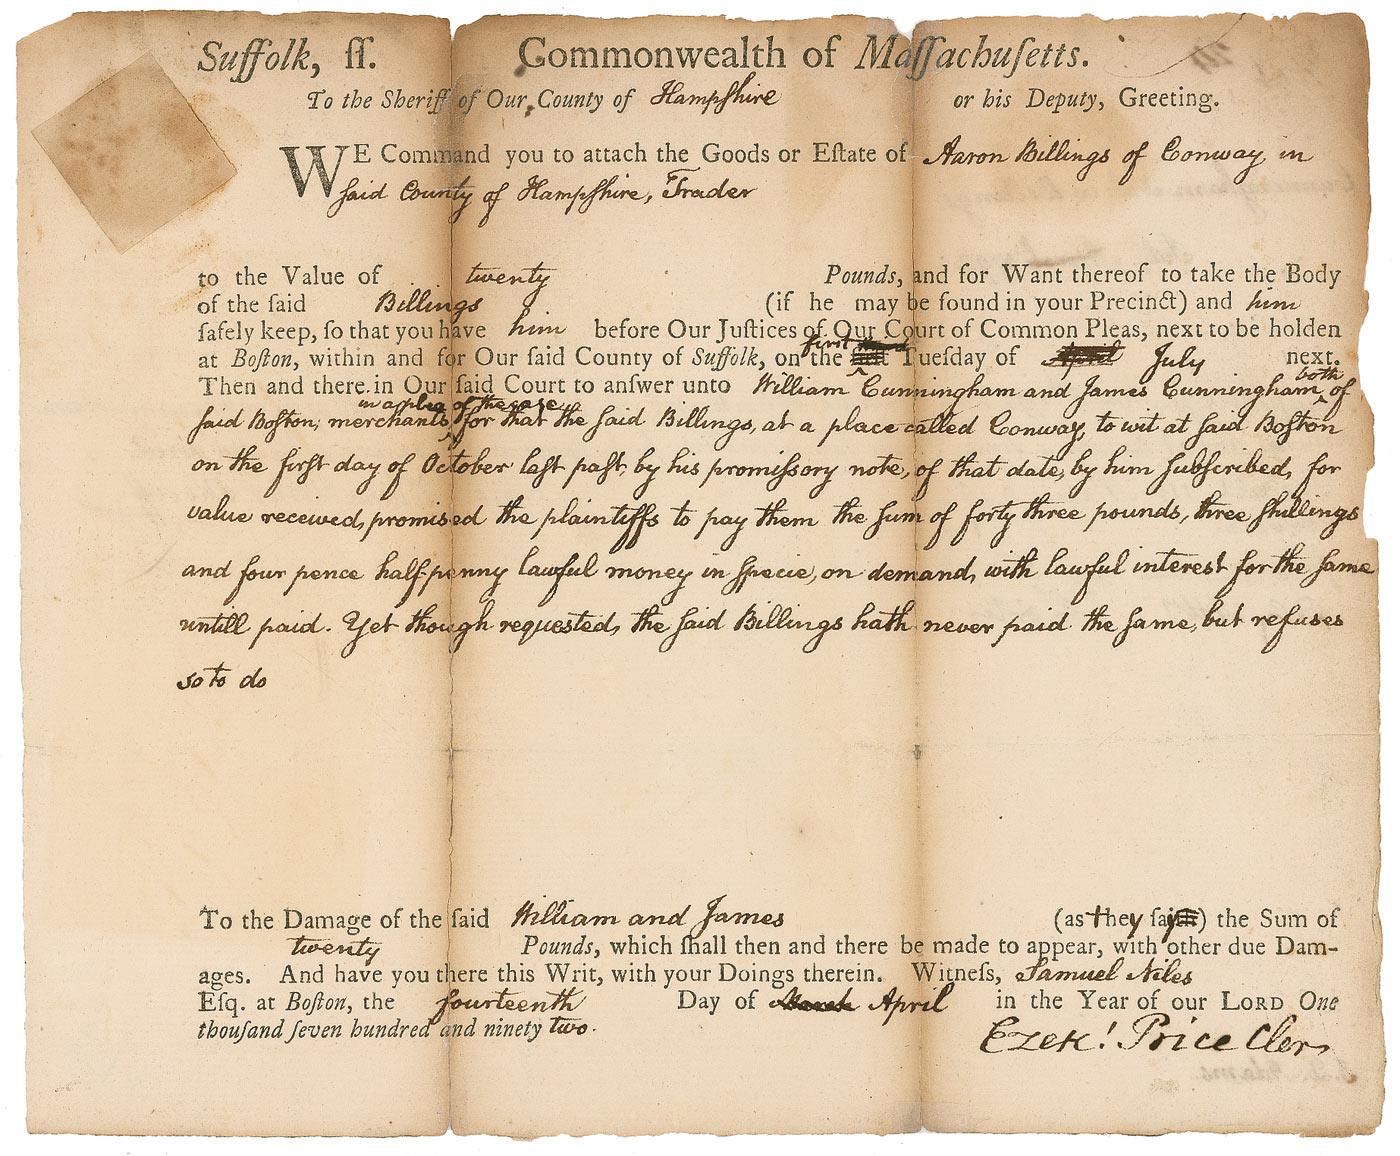 Suffolk, ſſ. Commonwealth of Maſſachuſetts.
To the Sheriff of Our County of Hampſhire or his Deputy, Greeting.
WE Command you to attach the Goods or Eſtate of Aaron Billings of Conway in
ſaid County of Hampſhire, Trader
to the Value of twenty Pounds, and for Want thereof to take the Body
of the ſaid Billings (if he may be found in your Precinct) and him
ſafely keep, ſo that you have him before Our Juſtices of Our Court of Common Pleas, next to be holden
first
at Boſton, within and for Our ſaid County of Suffolk, on the Tueſday of April July next.
both
Then and there in Our ſaid Court to anſwer unto William Cunningham and James Cunningham, of
in a plea of the case
ſaid Boſton, merchants for that the ſaid Billings, at a place called Conway, to wit at ſaid Boſton
on the firſt day of October laſt paſt, by his promiſsory note, of that date, by him ſubſcribed, for
value received, promised the plaintiffs to pay them the ſum of forty three pounds, three ſhillings
and four pence half-penny lawful money in ſpecie, on demand, with lawful interest for the ſame
untill paid. Yet though requested, the ſaid Billings hath never paid the ſame, but refuses
so to do
To the Damage of the ſaid William and James (as they ſay) the Sum of
twenty Pounds, which ſhall then and there be made to appear, with other due Dam-
ages. And have you there this Writ, with your Doings therein. Witneſs, Samuel Niles
Eſq. at Boſton, the fourteenth Day of March April in the Year of our LORD One
thouſand ſeven hundred and ninety two.
Ezek! Price Cler